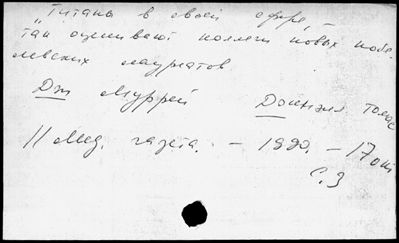 „Титаны в своей сфере, –
так оценивают коллеги новых нобе-
левских лауреатов
Дж Муррей Доннэл Томас
// Мед. газета. – 1990. – 17 окт
С. 3